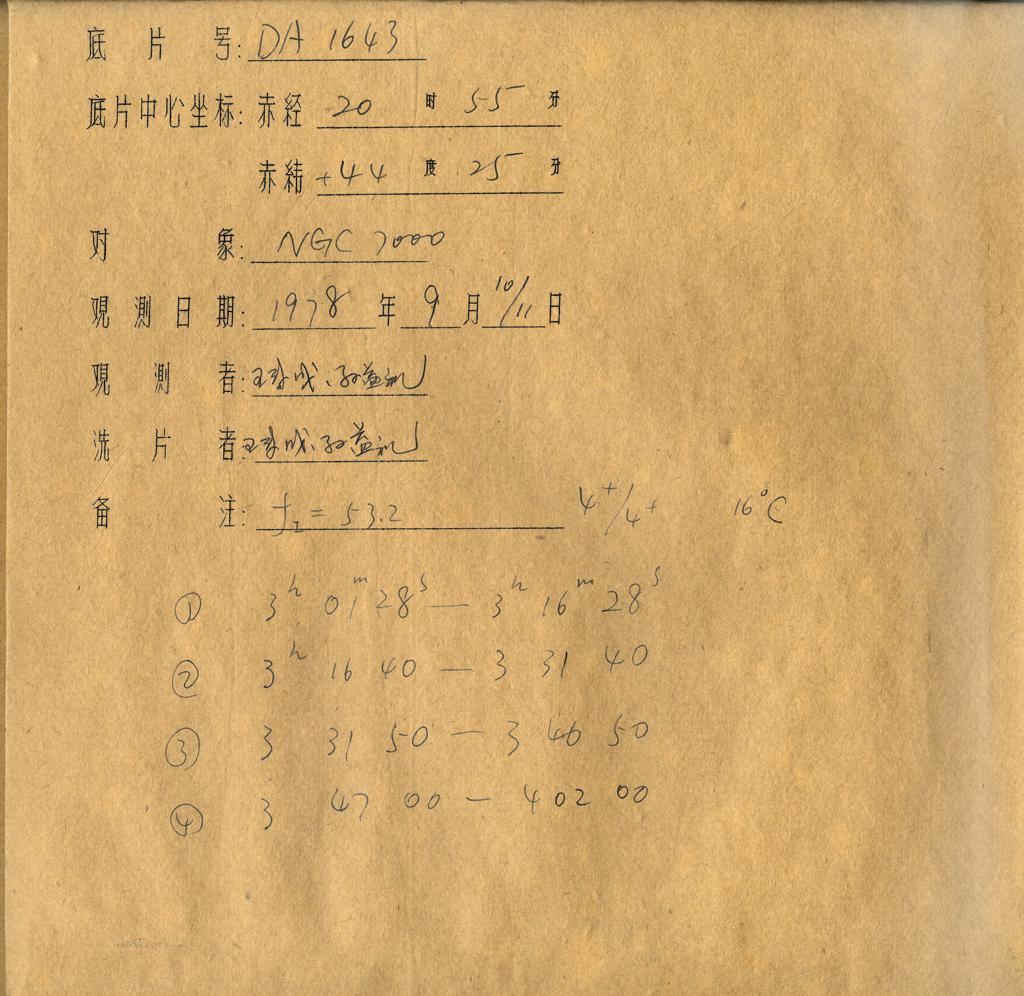 底片号: DA 1643
底片中心坐标: 赤经 20 时 55 分
赤纬 +44 度 25 分
对象: NGC 7000
观测日期: 1978 年 9 月 10/11 日
观测者:
洗片者:
备注: f₂ = 53.2 4⁺/4⁺ 16°C
① 3ʰ 01ᵐ 28ˢ — 3ʰ 16ᵐ 28ˢ
② 3ʰ 16 40 — 3 31 40
③ 3 31 50 — 3 46 50
④ 3 47 00 — 4 02 00